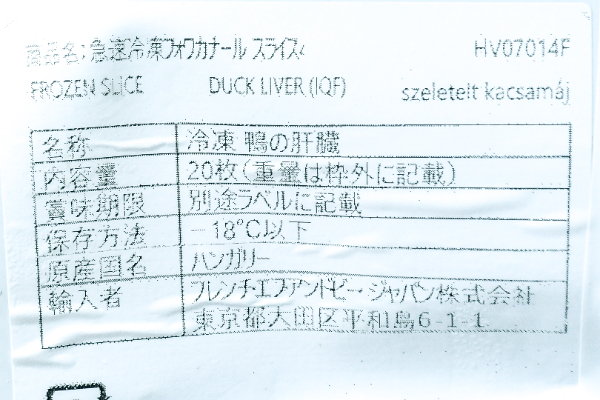 商品名：急速冷凍フォワカナール スライス HV07014F
FROZEN SLICE DUCK LIVER (IQF) szeletelt kacsamáj
名称 冷凍 鴨の肝臓
内容量 20枚(重量は枠外に記載)
賞味期限 別途ラベルに記載
保存方法 －18℃以下
原産国名 ハンガリー
輸入者 フレンチ・エフアンドビー・ジャパン株式会社
東京都大田区平和島6-1-1